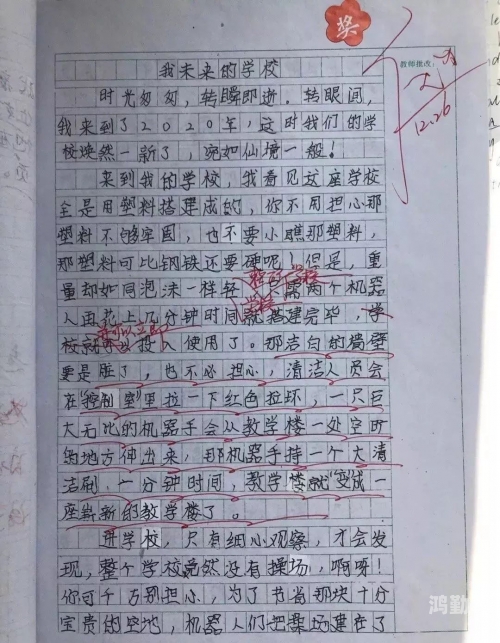 奖
教师批改:
我未来的学校
时光匆匆,转瞬即逝。转眼间,
我来到了2020年,这时我们的学
校焕然一新了,宛如仙境一般!
来到我的学校,我看见这座学校
全是用塑料搭建成的,你不用担心那
塑料不够牢固,也不要小瞧那塑料,
那塑料可比钢铁还要硬呢!但是,重
量却如同泡沫一样轻,只需两个机器
人再花上几分钟时间就搭建完毕,学
校就可以投入使用了。那洁白的墙壁
要是脏了,也不必担心,清洁人员会
在"控制室"里拉一下红色拉环,一只巨
大无比的机器手会从教学楼一处空旷
的地方伸出来,那机器手持一个大清
洁刷,一分钟时间,教学楼就"变"成一
座崭新的教学楼了。
进学校,只有细小观察,才会发
现,整个学校竟然没有操场,啊呀!
你可千万别担心,为了节省那块十分
宝贵的空地,机器人们把操场建在了
12.26
鸿勤